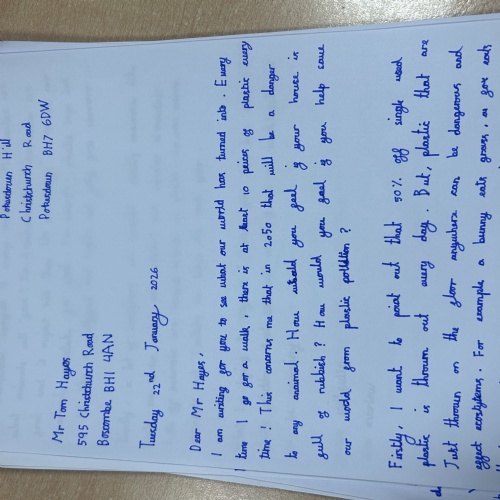 Pokesdown Hill
Christchurch Road
Pokesdown BH7 6DW
Mr Tom Hayes
595 Christchurch Road
Boscombe BH1 4AN
Tuesday 22nd January 2026
Dear Mr Hayes,
I am writing for you to see what our world has turned into. Every
time I go for a walk, there is at least 10 peices of plastic every
time! This concerns me that in 2050 that will be a danger
to any animal. How would you feel if your house is
full of rubbish? How would you feel if you help save
our world from plastic pollution?
Firstly, I want to point out that 50% off single used
plastic is thrown out every day. But, plastic that are
Just thrown on the floor anywhere can be dangerous and
effect ecostytems. For example a bunny eats grass, a fox eats